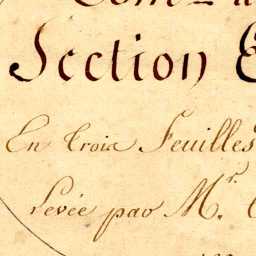 Section
En trois Feuilles
Levée par Mr.